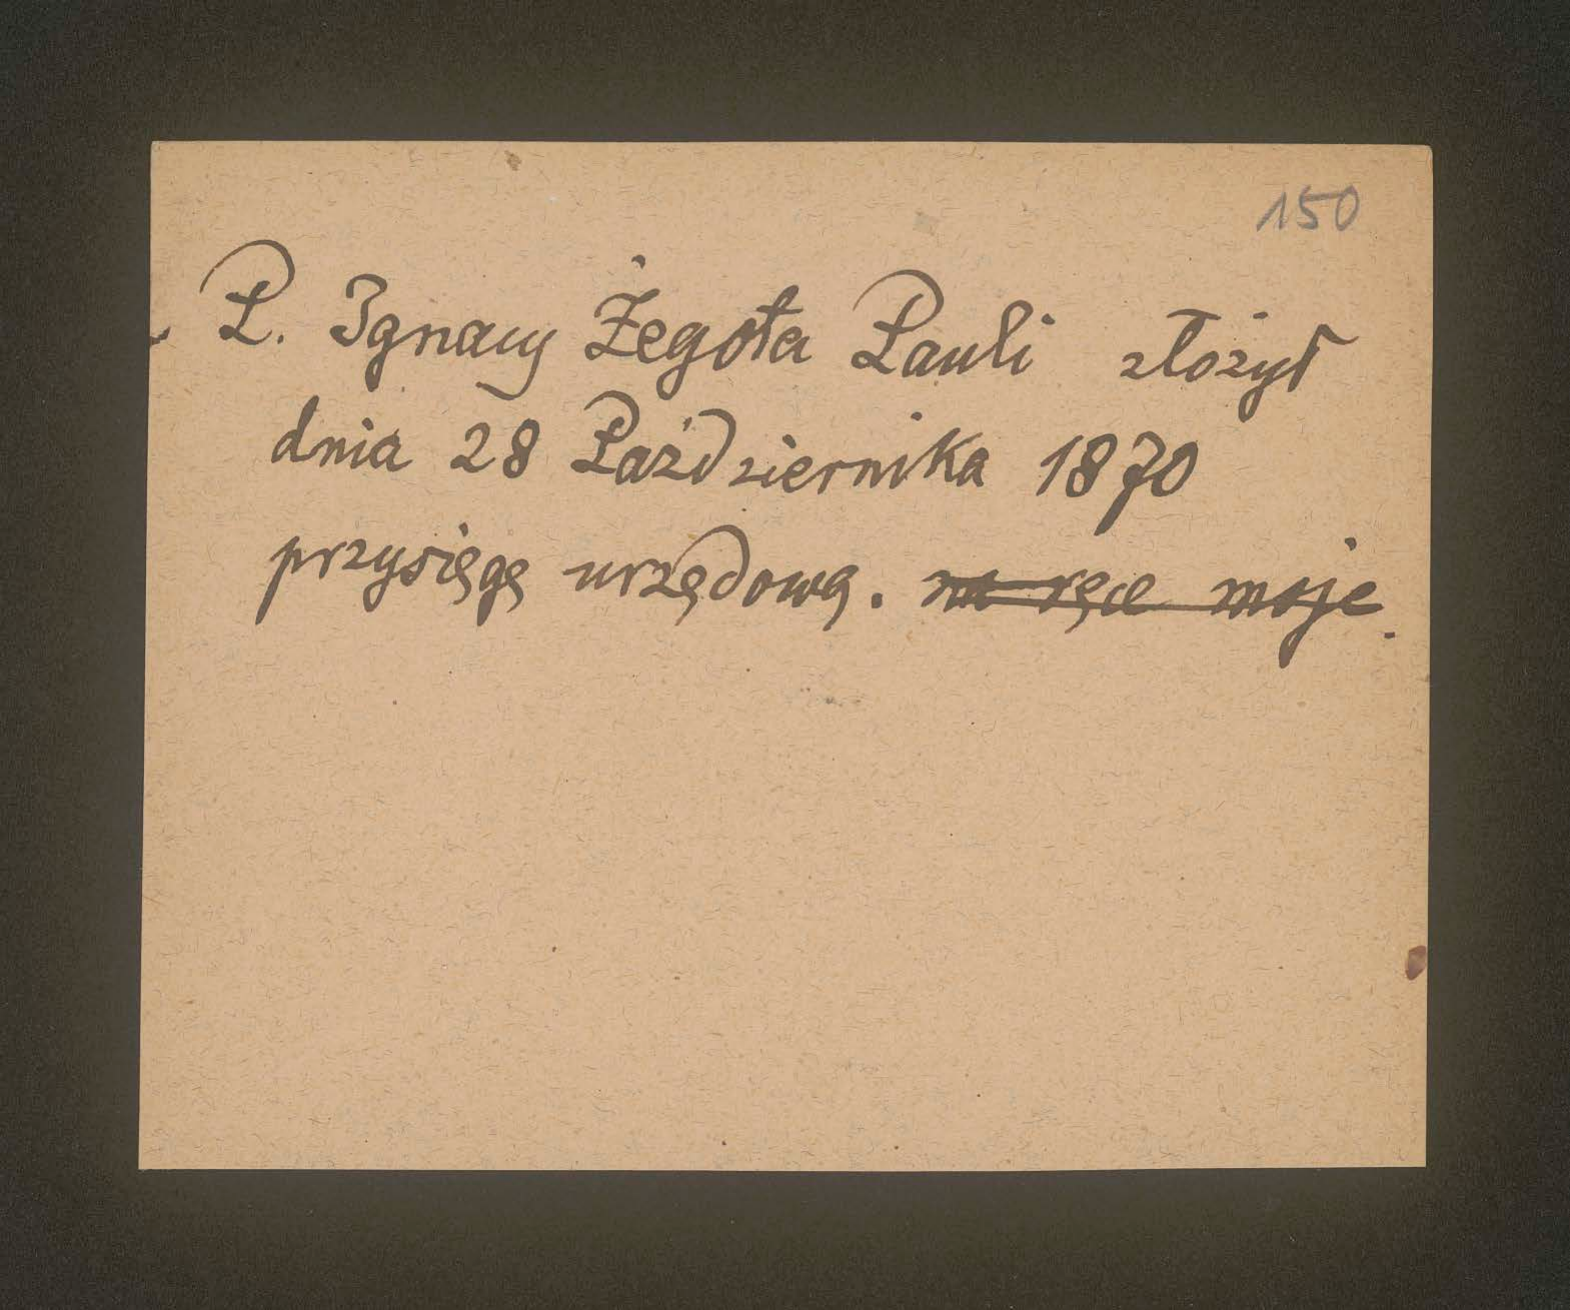 150
P. Ignacy Żegota Pauli złożył
dnia 28 Października 1870
przysięgę urzędową. na ręce moje.